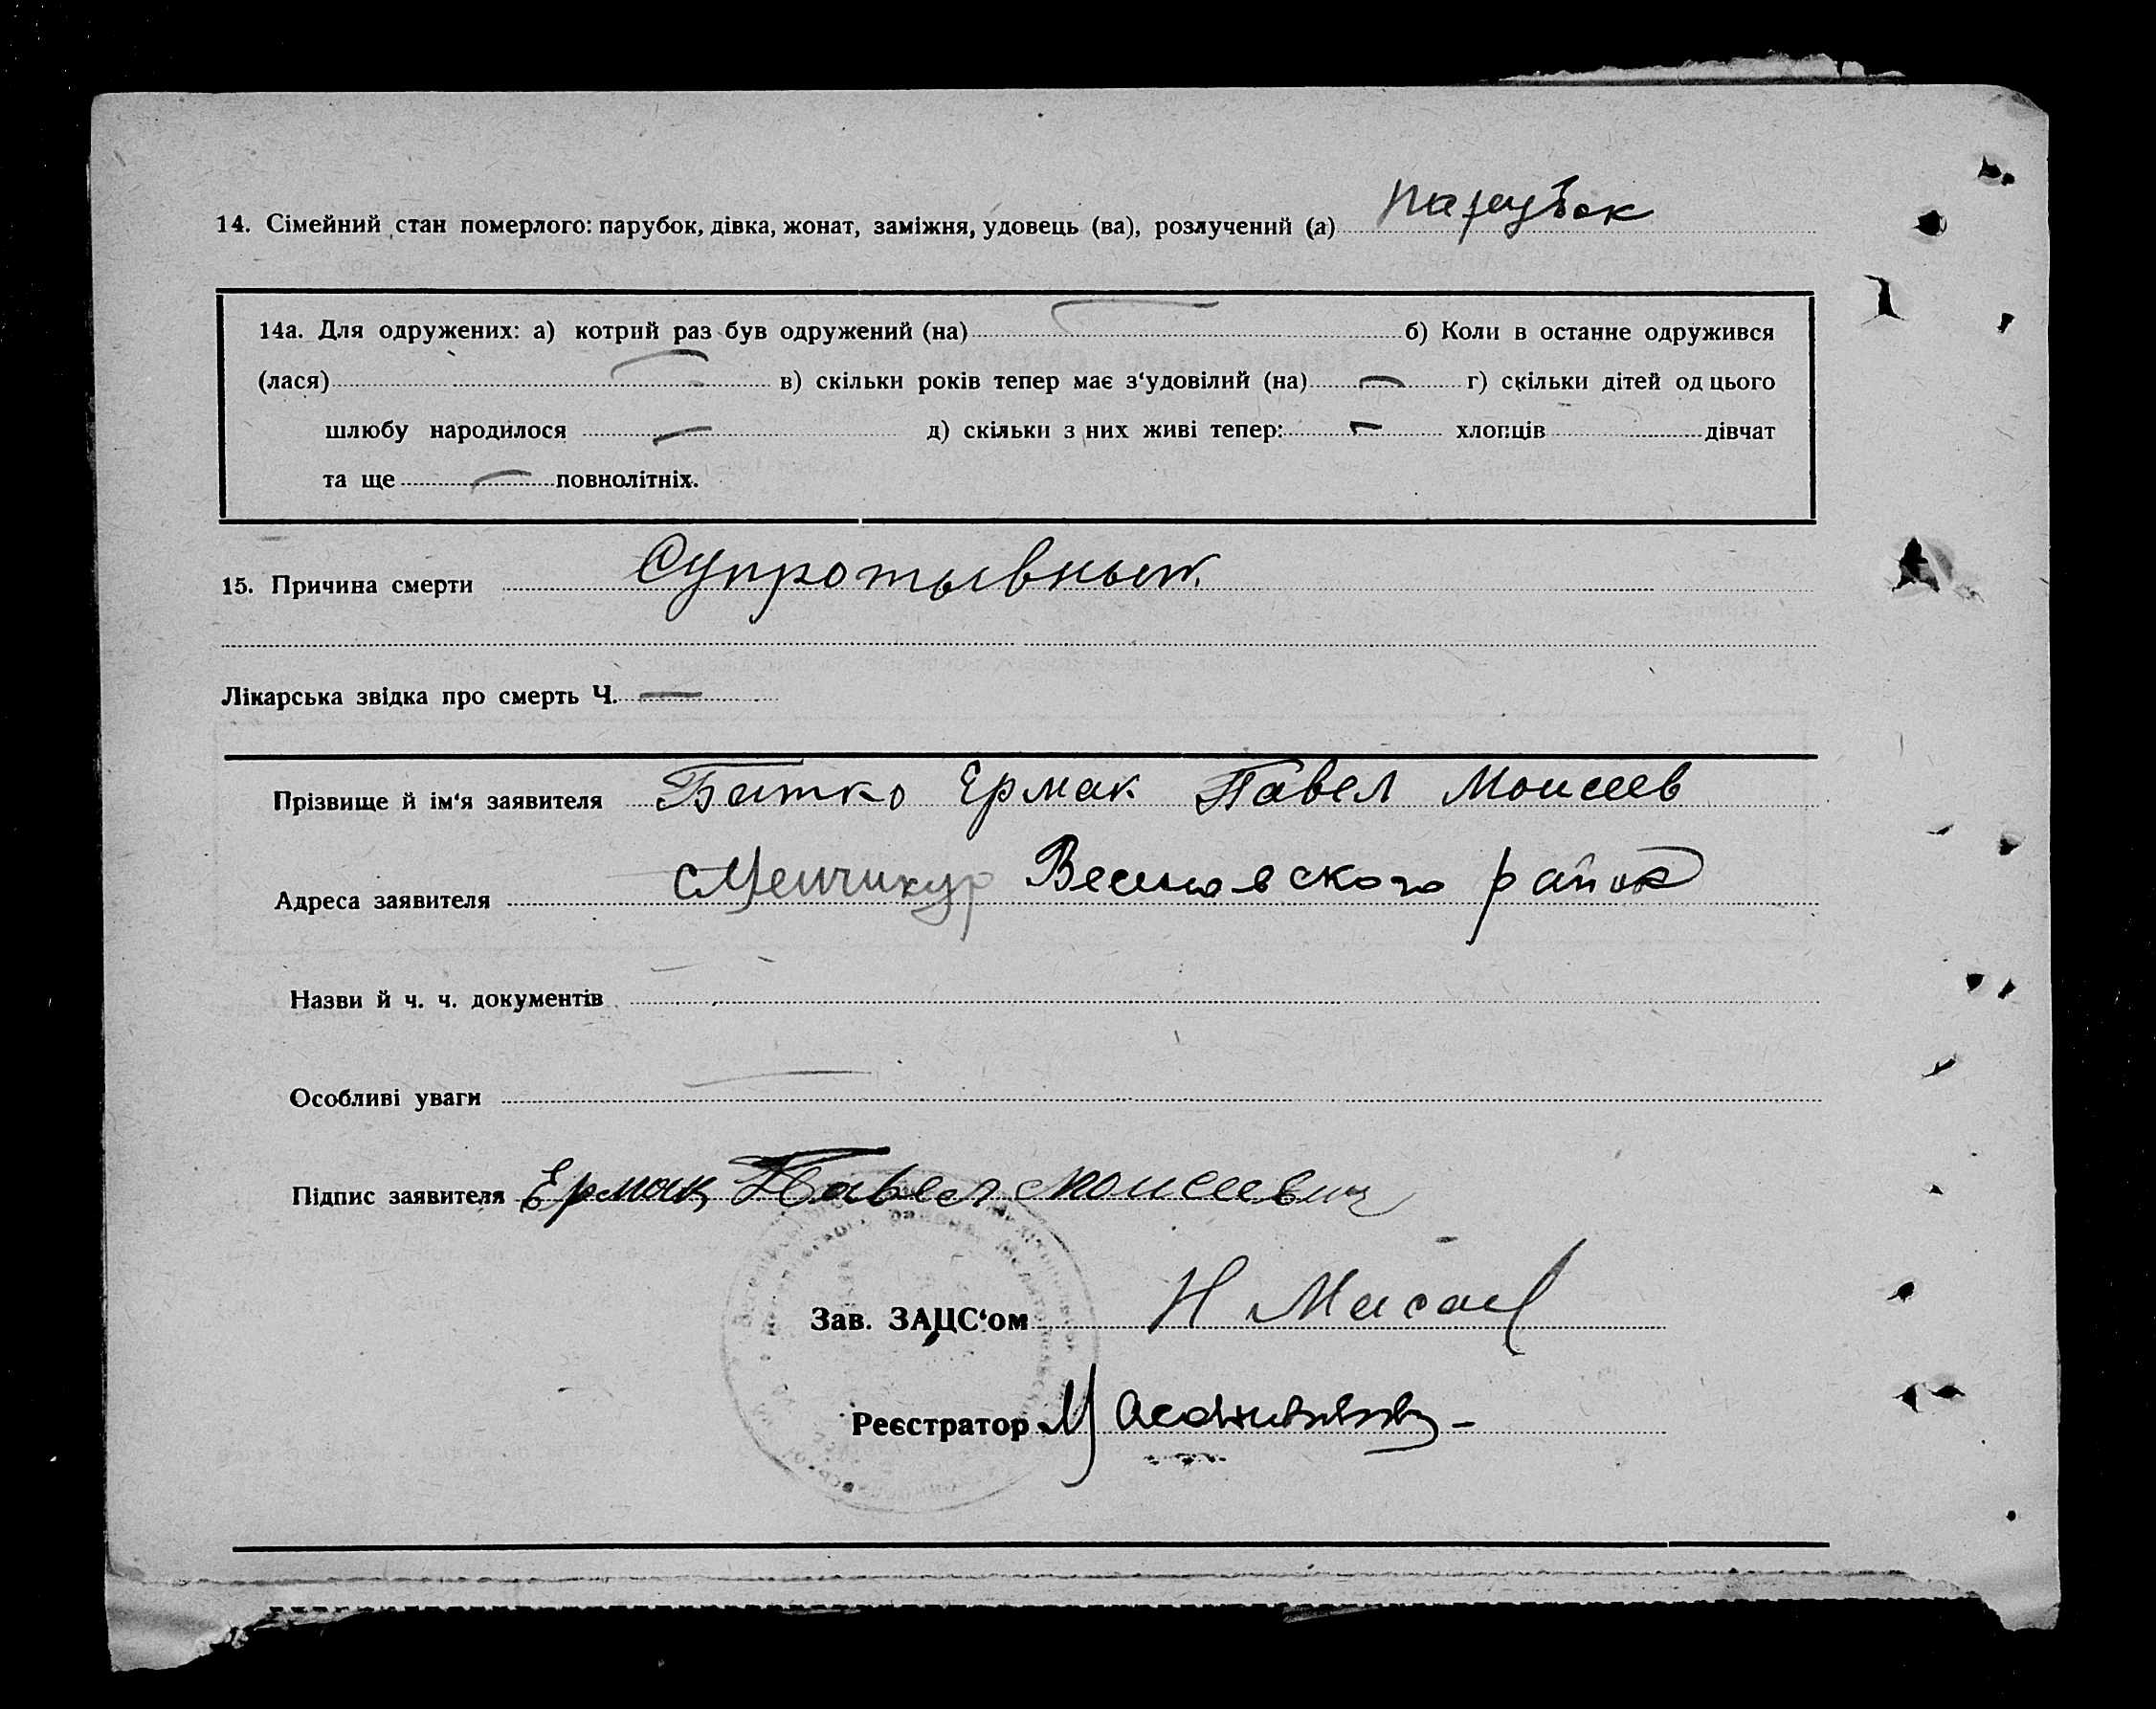 14. Сімейний стан померлого: парубок, дівка, жонат, заміжня, удовець (ва), розлучений (а) парубок
14а. Для одружених: а) котрий раз був одружений (на) б) Коли в останнє одружився
(лася) в) скільки років тепер має з‘удовілий (на) г) скільки дітей од цього
шлюбу народилося д) скільки з них живі тепер: хлопців дівчат
та ще повнолітніх.
15. Причина смерти Супротывный
Лікарська звідка про смерть Ч. —
Прізвище й ім‘я заявителя Батко Ермак Павел Моисеев
Адреса заявителя с Менчикур Веселовского района
Назви й ч. ч. документів
Особливі уваги
Підпис заявителя Ермак Павел Моисеевич
Зав. ЗАЦС‘ом Н
Реєстратор